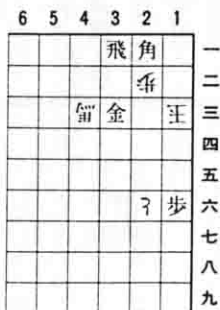 6 5 4 3 2 1
飛 角 一
歩 二
馬 金 玉 三
四
五
と 歩 六
七
八
九